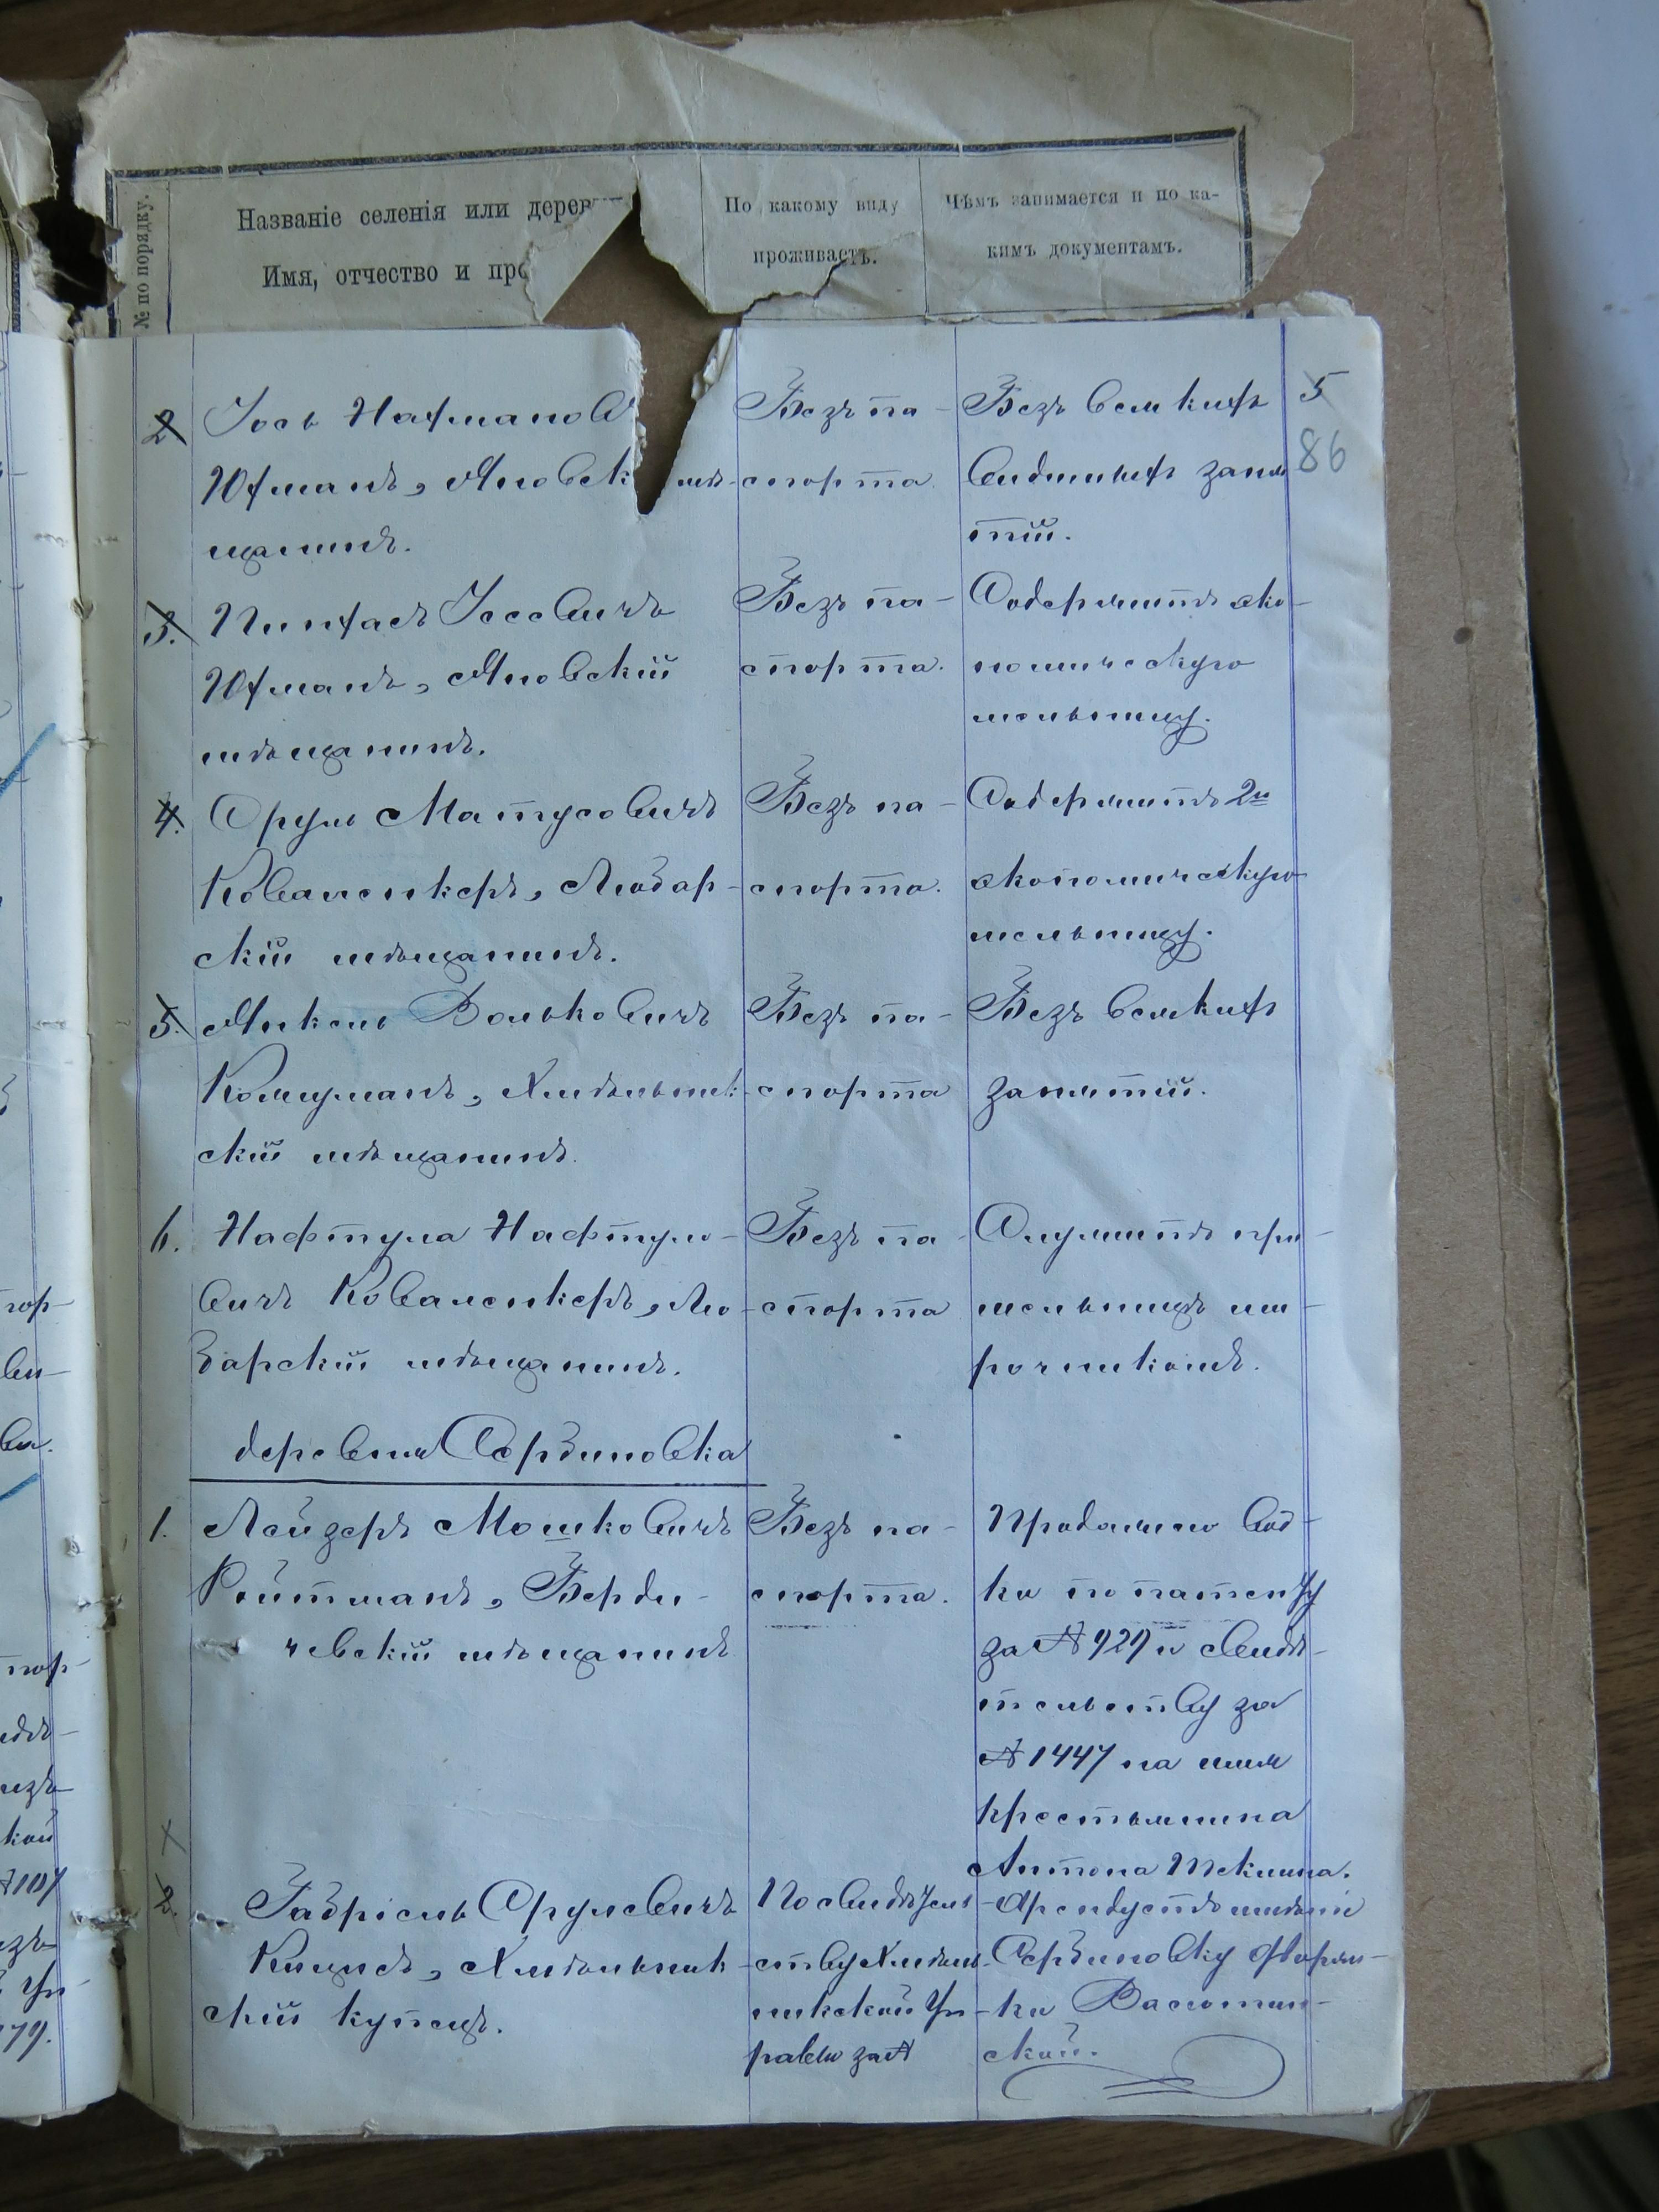 № по порядку.
Названіе селенія или дерев
Имя, отчество и про
По какому виду
проживаетъ.
Чѣмъ занимается и по ка-
кимъ документамъ.
5
86
2
Іось Нахманов
Юфманъ, Яновск мѣ-
щанинъ.
Безъ па-
спорта
Безъ всякихъ
видимыхъ заня
тій.
3.
Пинхасъ Іосевичъ
Юфманъ, Яновскій
мѣщанинъ.
Безъ па-
спорта.
Содержитъ эко-
номическую
мельницу.
4.
Сруль Матусовичъ
Коваленкеръ, Любар-
скій мѣщанинъ.
Безъ па-
спорта.
Содержитъ 2ю
экономическую
мельницу.
5.
Янкель Вольковичъ
Хмѣльник-
скій мѣщанинъ.
Безъ па-
спорта
Безъ всякихъ
занятій.
6.
Нафтула Нафтуло-
вичъ Коваленкеръ, Лю-
барскій мѣщанинъ.
Безъ па-
спорта
Служитъ при
мельницѣ ми-
рочникомъ.
деревня Сербиновка
1.
Лейзеръ Мошковичъ
Ройтманъ, Берди-
чевскій мѣщанинъ
Безъ па-
спорта.
Продажею вод-
ки по патенту
за № 929 и свидѣ-
тельству за
№ 1447 на имя
крестьянина
Антона
2.
Габріель Срулевичъ
Кицисъ, Хмѣльник-
скій купецъ.
По свидѣтель-
ству Хмѣль-
никской Уп-
равы за №
Арендуетъ имѣніе
Сербиновку дворян-
ки
ской.